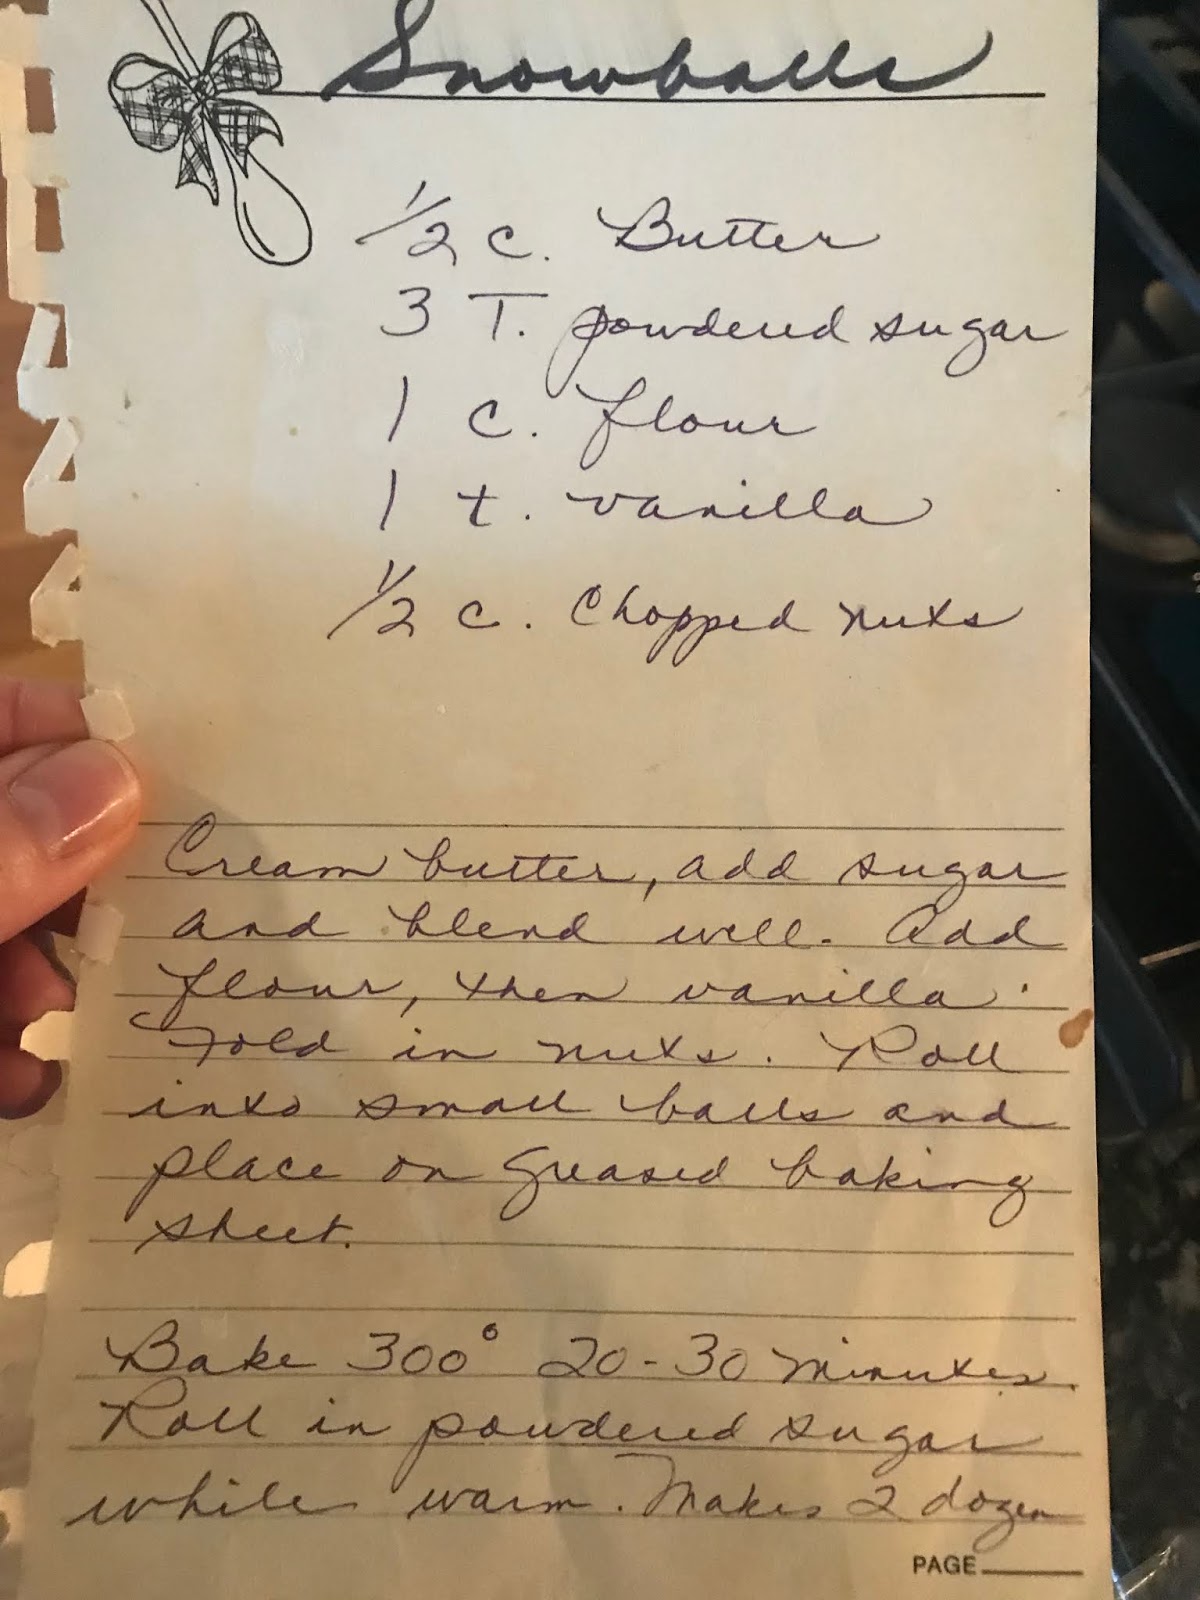 Snowballs
1/2 c. Butter
3 T. powdered sugar
1 c. flour
1 t. vanilla
1/2 c. Chopped nuts
Cream butter, add sugar
and blend well. Add
flour, then vanilla.
Fold in nuts. Roll
into small balls and
place on greased baking
sheet.
Bake 300° 20-30 minutes.
Roll in powdered sugar
while warm. Makes 2 dozen
PAGE